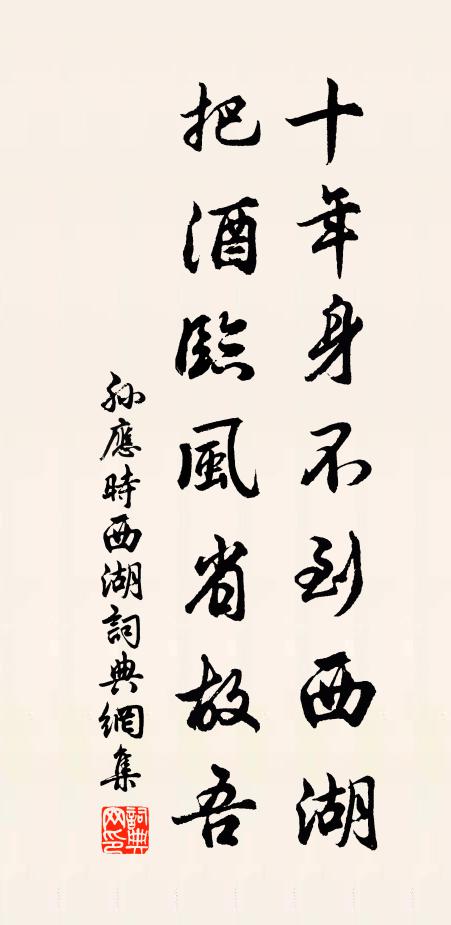 十年身不到西湖
把酒臨風省故吾
孙應時西湖詞典網集
詞典網印